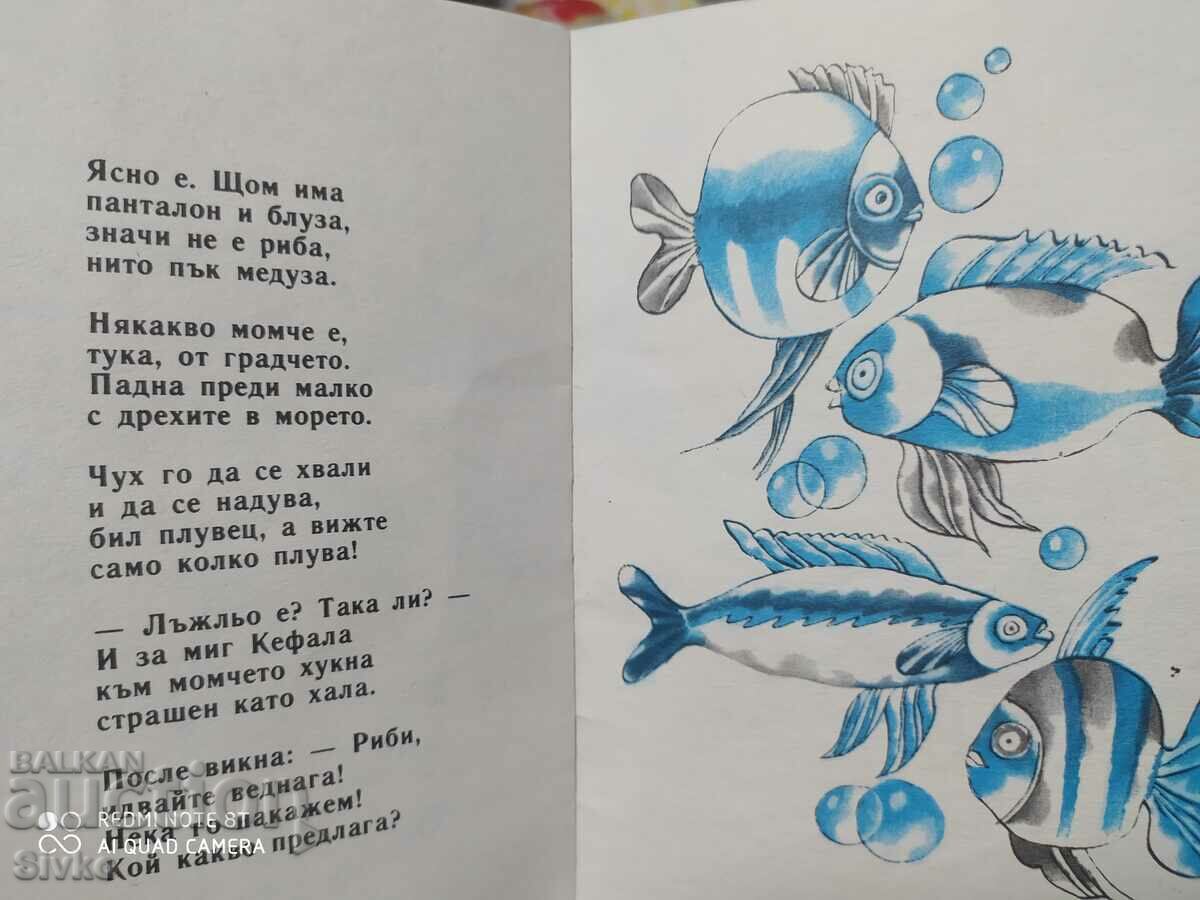 Ясно е. Щом има
панталон и блуза,
значи не е риба,
нито пък медуза.
Някакво момче е,
тука, от градчето.
Падна преди малко
с дрехите в морето.
Чух го да се хвали
и да се надува,
бил плувец, а вижте
само колко плува!
— Лъжльо е? Така ли? —
И за миг Кефала
към момчето хукна
страшен като хала.
После викна: — Риби,
идвайте веднага!
Нека го накажем!
Кой какво предлага?
BALKAN
auction
REDMI NOTE 8T
AI QUAD CAMERA
Sivko